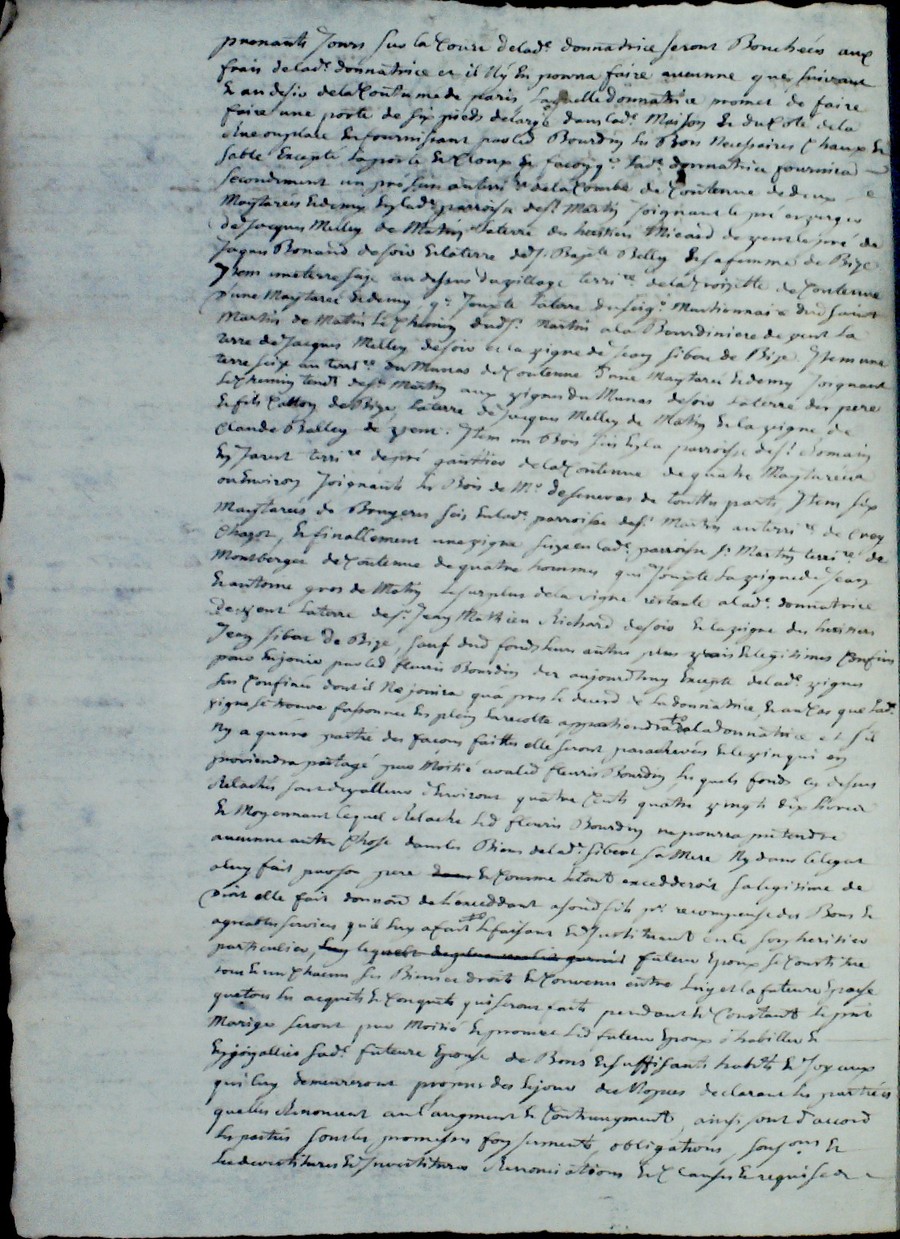 prenants Jours sur la Cour de lad.e donnatrice seront Bouchées aux
frais de lad.e donnatrice et il n'y en pourra faire aucunne que suivant
Et au desir de la Coutume de paris, Laquelle donnatrice promet de faire
faire une porte de six pieds de large dans lad.e Maison Et du Coté de la
en fournissant par led Bourdin les Bois Necessaires Chaux Et
sable Excepté la porte Et Cloux Et façon q.e lad.e donnatrice fournira
secondement un pré sis au terri.re de la Combe de Contenue de deux
Maytarées Et demy En lad.e parroisse de s.t Martin Joignant le pré
de Jacques Melley de Matin La terre des heritiers Micard de vent le pré de
Jaques Bonand de soir Et la terre de s.r Bap.te Belley Et sa femme de Bize
Item une terre size au dessus du village terri.re de la Croizette de Contenue
d'une Maytarée Et demy q.e Jouxte La terre du seig.r dud saint
Martin de Matin Le Chemin dud s.t Martin a la Bourdiniere de vent La
terre de Jacques Melley de soir et la vigne de Jean Sibou de Bize Item une
terre size au terri.re du Munas de Contenue d'une Maytarée Et demy Joignant
Le Chemin tend.t de s.t Martin aux vignes du Munas de soir La terre des pere
Et fils de Bize, La terre de Jacques Melley de Matin Et la vigne de
Claude Belley de vent. Item un Bois sis En la parroisse de s.t Romain
En Jarest terri.re de pré de la Contenue de quatre Maytarées
ou Environ Joignants Les Bois de M.r de Senevas de touttes parts Item six
Maytarées de Bruyeres sis En lad.e parroisse de s.t Martin au terri.re de Crey
Chazot, Et finallement une vigne size en lad.e parroisse s.t Martin terri.re de
Montberger de Contenue de quatre hommes qui Jouxte La vigne de Jean
Et antoine gros de Matin Le surplus de la vigne restante a lad.e donnatrice
De vent La terre de s.r Jean Mathieu Richard de soir Et la vigne des heritiers
Jean Sibou de Bize, sauf dud fonds leurs autres plus vrais Et legitimes Confins
pour En jouir par led fleuris Bourdin des aujourdhuy Excepté de lad.e vigne
sus Confinée dont il Ne jouira qu'apres le deced de La donnatrice, Et au Cas que lad.e
vigne se trouve fassonnée En plein La recolte appartiendra a la donnatrice et s'il
N'y a qu'une partie des facons faittes elle seront parachevées Et le vin qui en
proviendra partagé par Moitié avec led fleuris Bourdin Les quels fonds cy dessus
Relachés sont de valleur d'Environs quatre Cents quatre vingts dix livres
Et Moyennant lequel Relache Led fleuris Bourdin ne pourra pretendre
aucunne autre Chose dans les Biens de lad.e Sibert sa Mere Ny dans Le legat
a luy fait par son pere Et Comme le tout excedderoit sa legitime de
Droit elle fait donnaõn de L'exceddant a sond fils p.r recompense des Bons Et
agreables services qu'il luy a fait Et le faisant Et Jnstituant en ce son heritier
particulier, futeur Epoux se Constitue
tous Et un Chacuns ses Biens et droits Et Convenu entre luy et la future Epouse
que tous les acquets Et Conquets qui seront faits pendant Et Constant Le p.nt
Mariage seront par Moitié Et promet Led futeur Epoux d'habiller Et
Enjoyallier sad.e future Epouse de Bons Et suffisants habits Et Joyaux
qui luy demeureront propres des le jour des Nopces declarant les parties
quelles Renoncent au d augment Et Contraugment, ainsi sont d'accord
Les parties sous les promesses foy serment, obligations, Et
Les devestitures Et Jnvestitures Renonciations Et Clauses Et requises